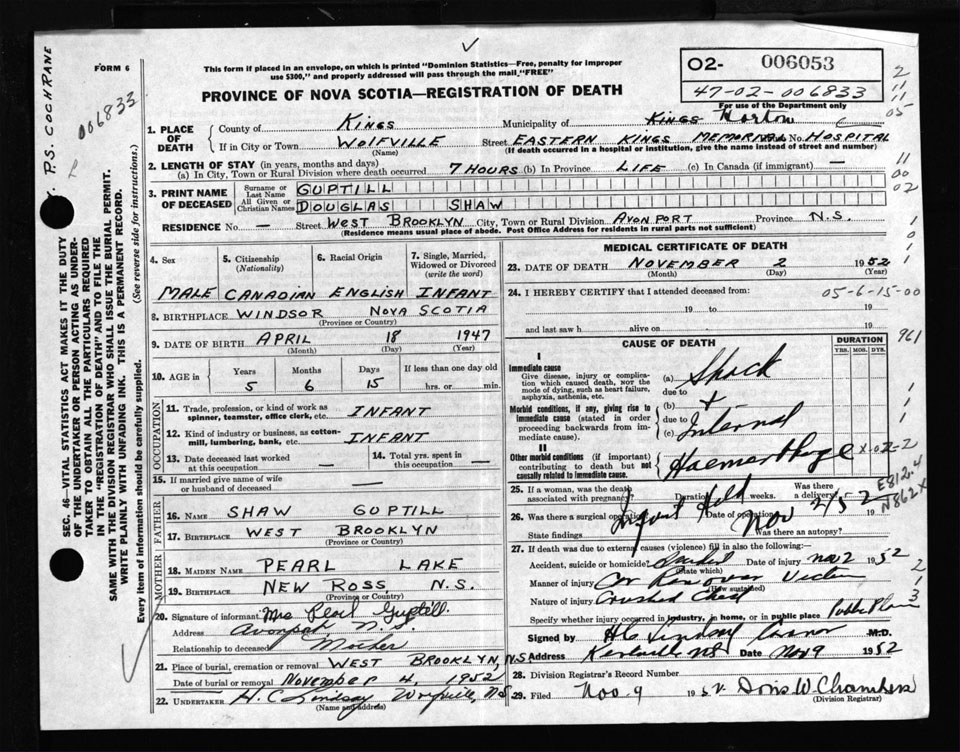 FORM 6
This form if placed in an envelope, on which is printed "Dominion Statistics—Free, penalty for improper
use $300," and properly addressed will pass through the mail "FREE"
PROVINCE OF NOVA SCOTIA—REGISTRATION OF DEATH
O2- 006053
47-02-006833
For use of the Department only
P.S. COCHRANE
006833
1. PLACE OF DEATH
County of KINGS Municipality of KINGS Horton
If in City or Town WOLFVILLE Street EASTERN KINGS MEMORIAL No. HOSPITAL
(Name) (If death occurred in a hospital or institution, give the name instead of street and number)
2. LENGTH OF STAY (in years, months and days)
(a) In City, Town or Rural Division where death occurred 7 HOURS (b) In Province LIFE (c) In Canada (if immigrant) —
3. PRINT NAME OF DECEASED
Surname or Last Name GUPTILL
All Given or Christian Names DOUGLAS SHAW
RESIDENCE No. — Street WEST BROOKLYN City, Town or Rural Division AVONPORT Province N.S.
(Residence means usual place of abode. Post Office Address for residents in rural parts not sufficient)
4. Sex 5. Citizenship (Nationality) 6. Racial Origin 7. Single, Married, Widowed or Divorced (write the word)
MALE CANADIAN ENGLISH INFANT
8. BIRTHPLACE WINDSOR NOVA SCOTIA
(Province or Country)
9. DATE OF BIRTH APRIL 18 1947
(Month) (Day) (Year)
10. AGE in Years Months Days If less than one day old
5 6 15 hrs. or min.
OCCUPATION
11. Trade, profession, or kind of work as
spinner, teamster, office clerk, etc. INFANT
12. Kind of industry or business, as cotton-
mill, lumbering, bank, etc. INFANT
13. Date deceased last worked
at this occupation —
14. Total yrs. spent in
this occupation —
15. If married give name of wife
or husband of deceased —
FATHER
16. NAME SHAW GUPTILL
17. BIRTHPLACE WEST BROOKLYN
(Province or Country)
MOTHER
18. MAIDEN NAME PEARL LAKE
19. BIRTHPLACE NEW ROSS N.S.
(Province or Country)
20. Signature of informant Mrs Pearl Guptill
Address Avonport N.S.
Relationship to deceased Mother
21. Place of burial, cremation or removal WEST BROOKLYN, N.S.
Date of burial or removal November 4, 1952
22. UNDERTAKER H. C. Lindsay Wolfville, N.S.
(Name and address)
MEDICAL CERTIFICATE OF DEATH
23. DATE OF DEATH NOVEMBER 2 1952
(Month) (Day) (Year)
24. I HEREBY CERTIFY that I attended deceased from:
05-6-15-00
19 to 19
and last saw h alive on 19
CAUSE OF DEATH
DURATION
YRS. MOS. DYS.
961
I
Immediate cause
Give disease, injury or complica-
tion which caused death, NOT the
mode of dying, such as heart failure,
asphyxia, asthenia, etc.
(a) Shock
due to
Morbid conditions, if any, giving rise to
immediate cause (stated in order
proceeding backwards from im-
mediate cause).
(b) +
due to
(c) Internal
II
Other morbid conditions (if important)
contributing to death but not
causally related to immediate cause.
Haemorrhage
X-02-2
E812.4
N862X
25. If a woman, was the death
associated with pregnancy? Duration weeks. Was there
a delivery?
26. Was there a surgical operation? Date of operation
State findings Was there an autopsy?
Inquest Held Nov 2/52
27. If death was due to external causes (violence) fill in also the following:—
Accident, suicide or homicide? Accident Date of injury Nov 2 1952
(State which)
Manner of injury Car Run over Victim
(How sustained)
Nature of injury Crushed Chest
Specify whether injury occurred in industry, in home, or in public place Public Place
Signed by H C Lindsay Coroner M.D.
Address Kentville NS Date Nov 9 1952
28. Division Registrar's Record Number
29. Filed Nov. 9 1952. Doris W. Chambers
(Division Registrar)
SEC. 46 VITAL STATISTICS ACT MAKES IT THE DUTY
OF THE UNDERTAKER OR PERSON ACTING AS UNDER-
TAKER TO OBTAIN ALL THE PARTICULARS REQUIRED
IN THE "REGISTRATION OF DEATH" AND TO FILE THE
SAME WITH THE DIVISION REGISTRAR WHO SHALL ISSUE THE BURIAL PERMIT.
WRITE PLAINLY WITH UNFADING INK. THIS IS A PERMANENT RECORD.
Every item of information should be carefully supplied. (See reverse side for instructions.)